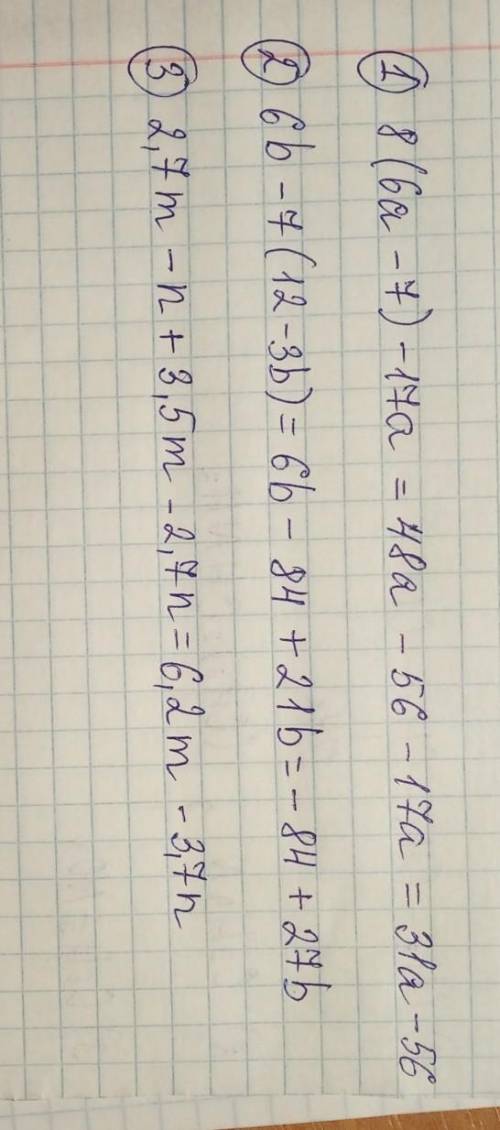 ① 8(6a - 7) - 17a = 48a - 56 - 17a = 31a - 56
② 6b - 7(12 - 3b) = 6b - 84 + 21b = - 84 + 27b
③ 2,7m - n + 3,5m - 2,7n = 6,2m - 3,7n